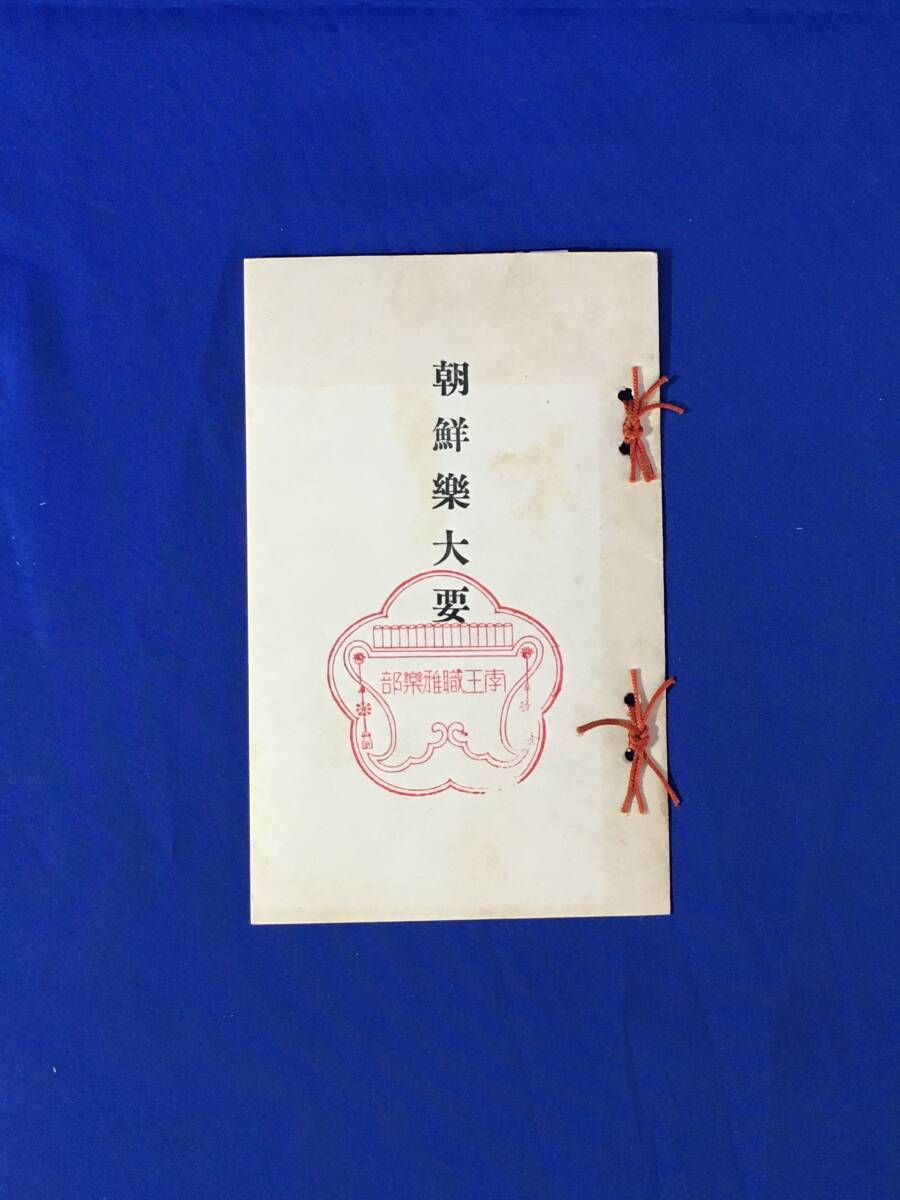 朝鮮樂大要
李王職雅樂部